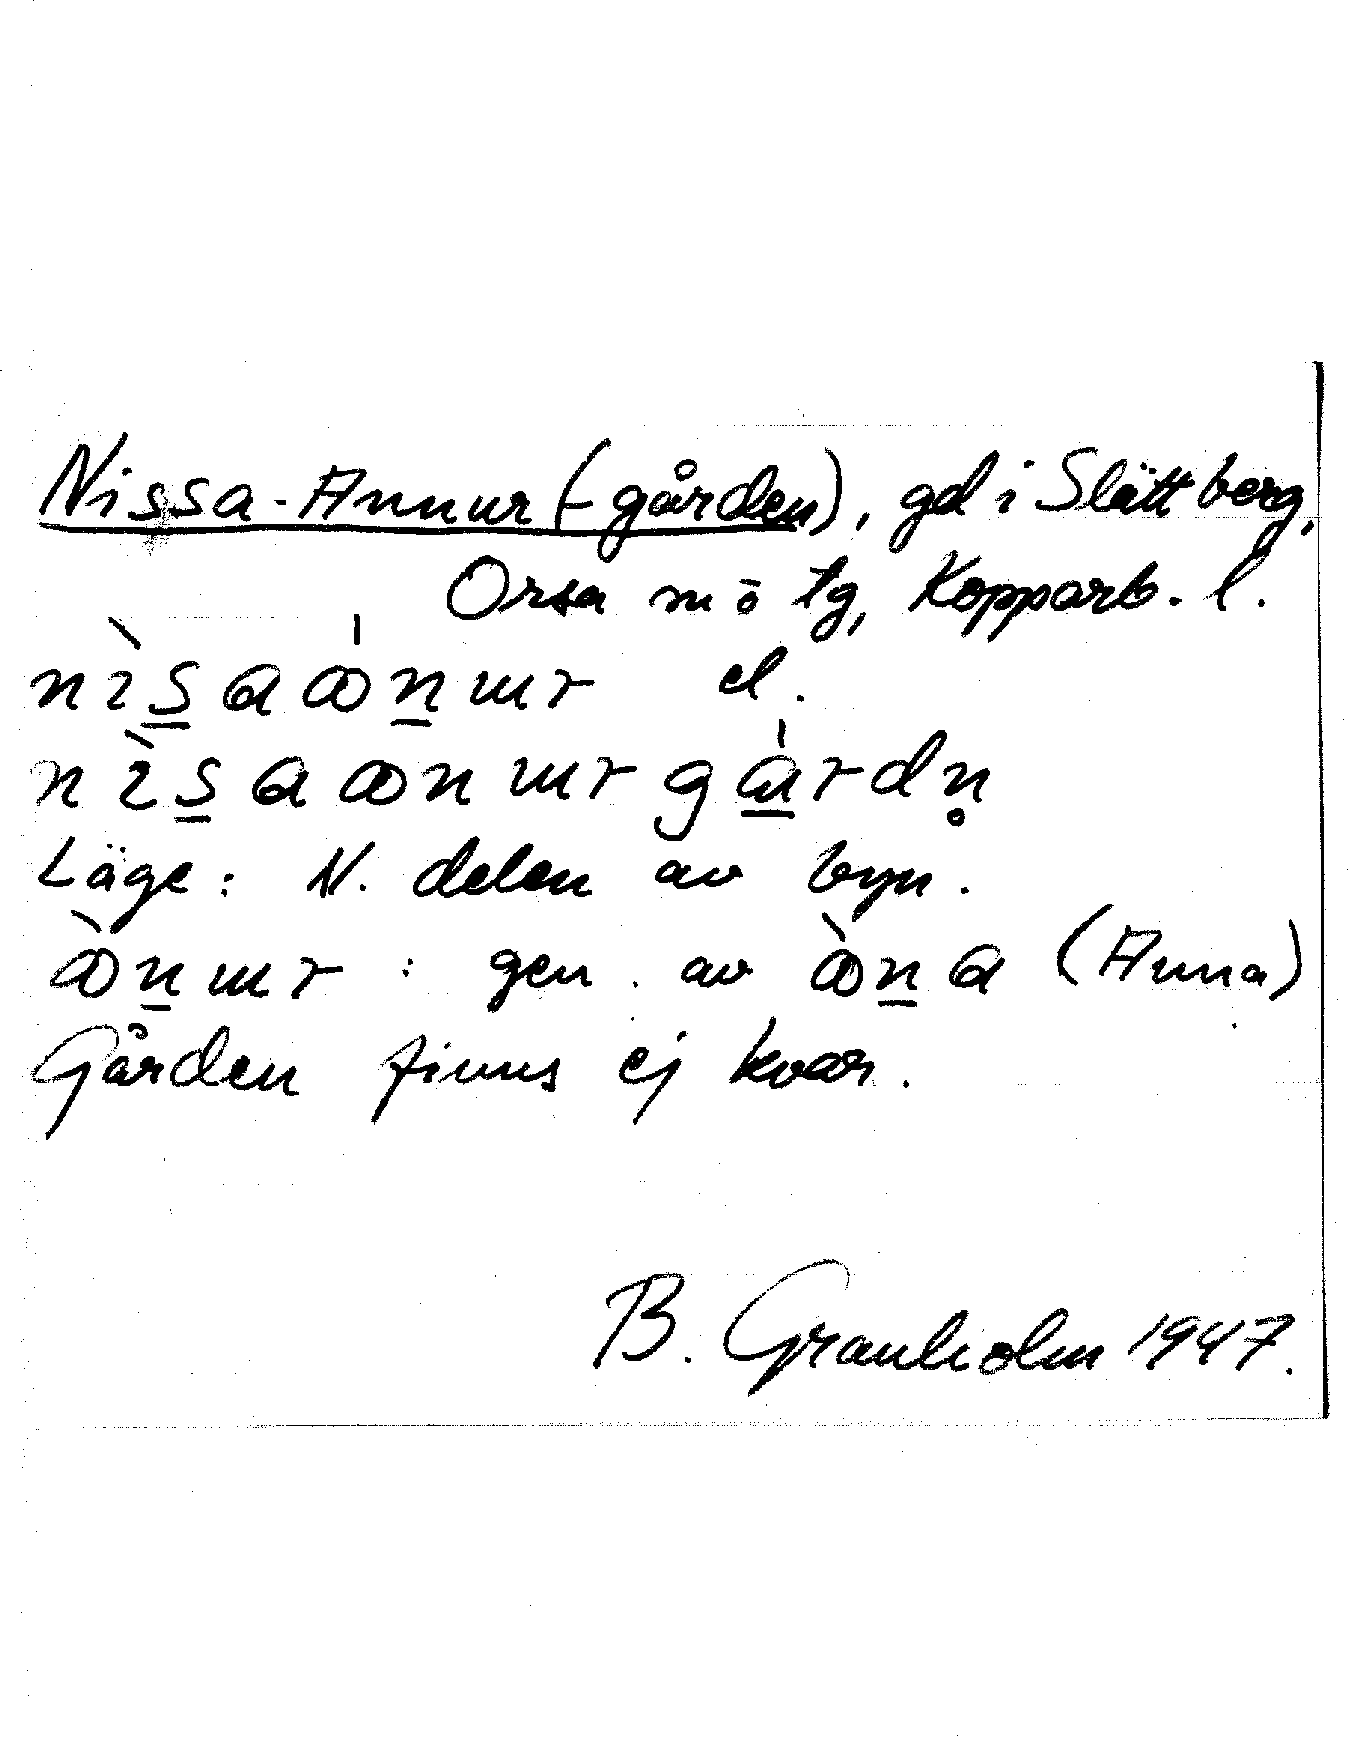 Nissa-Annur (-gården), gd i Slättberg,
Orsa sn o tg, Kopparb. l.
nìsaɑónɯr el.
nìsaɑonɯrgárdn̥
Läge: N. delen av byn.
ònɯr : gen. av òna (Anna)
Gården finns ej kvar.
B. Granholm 1947.